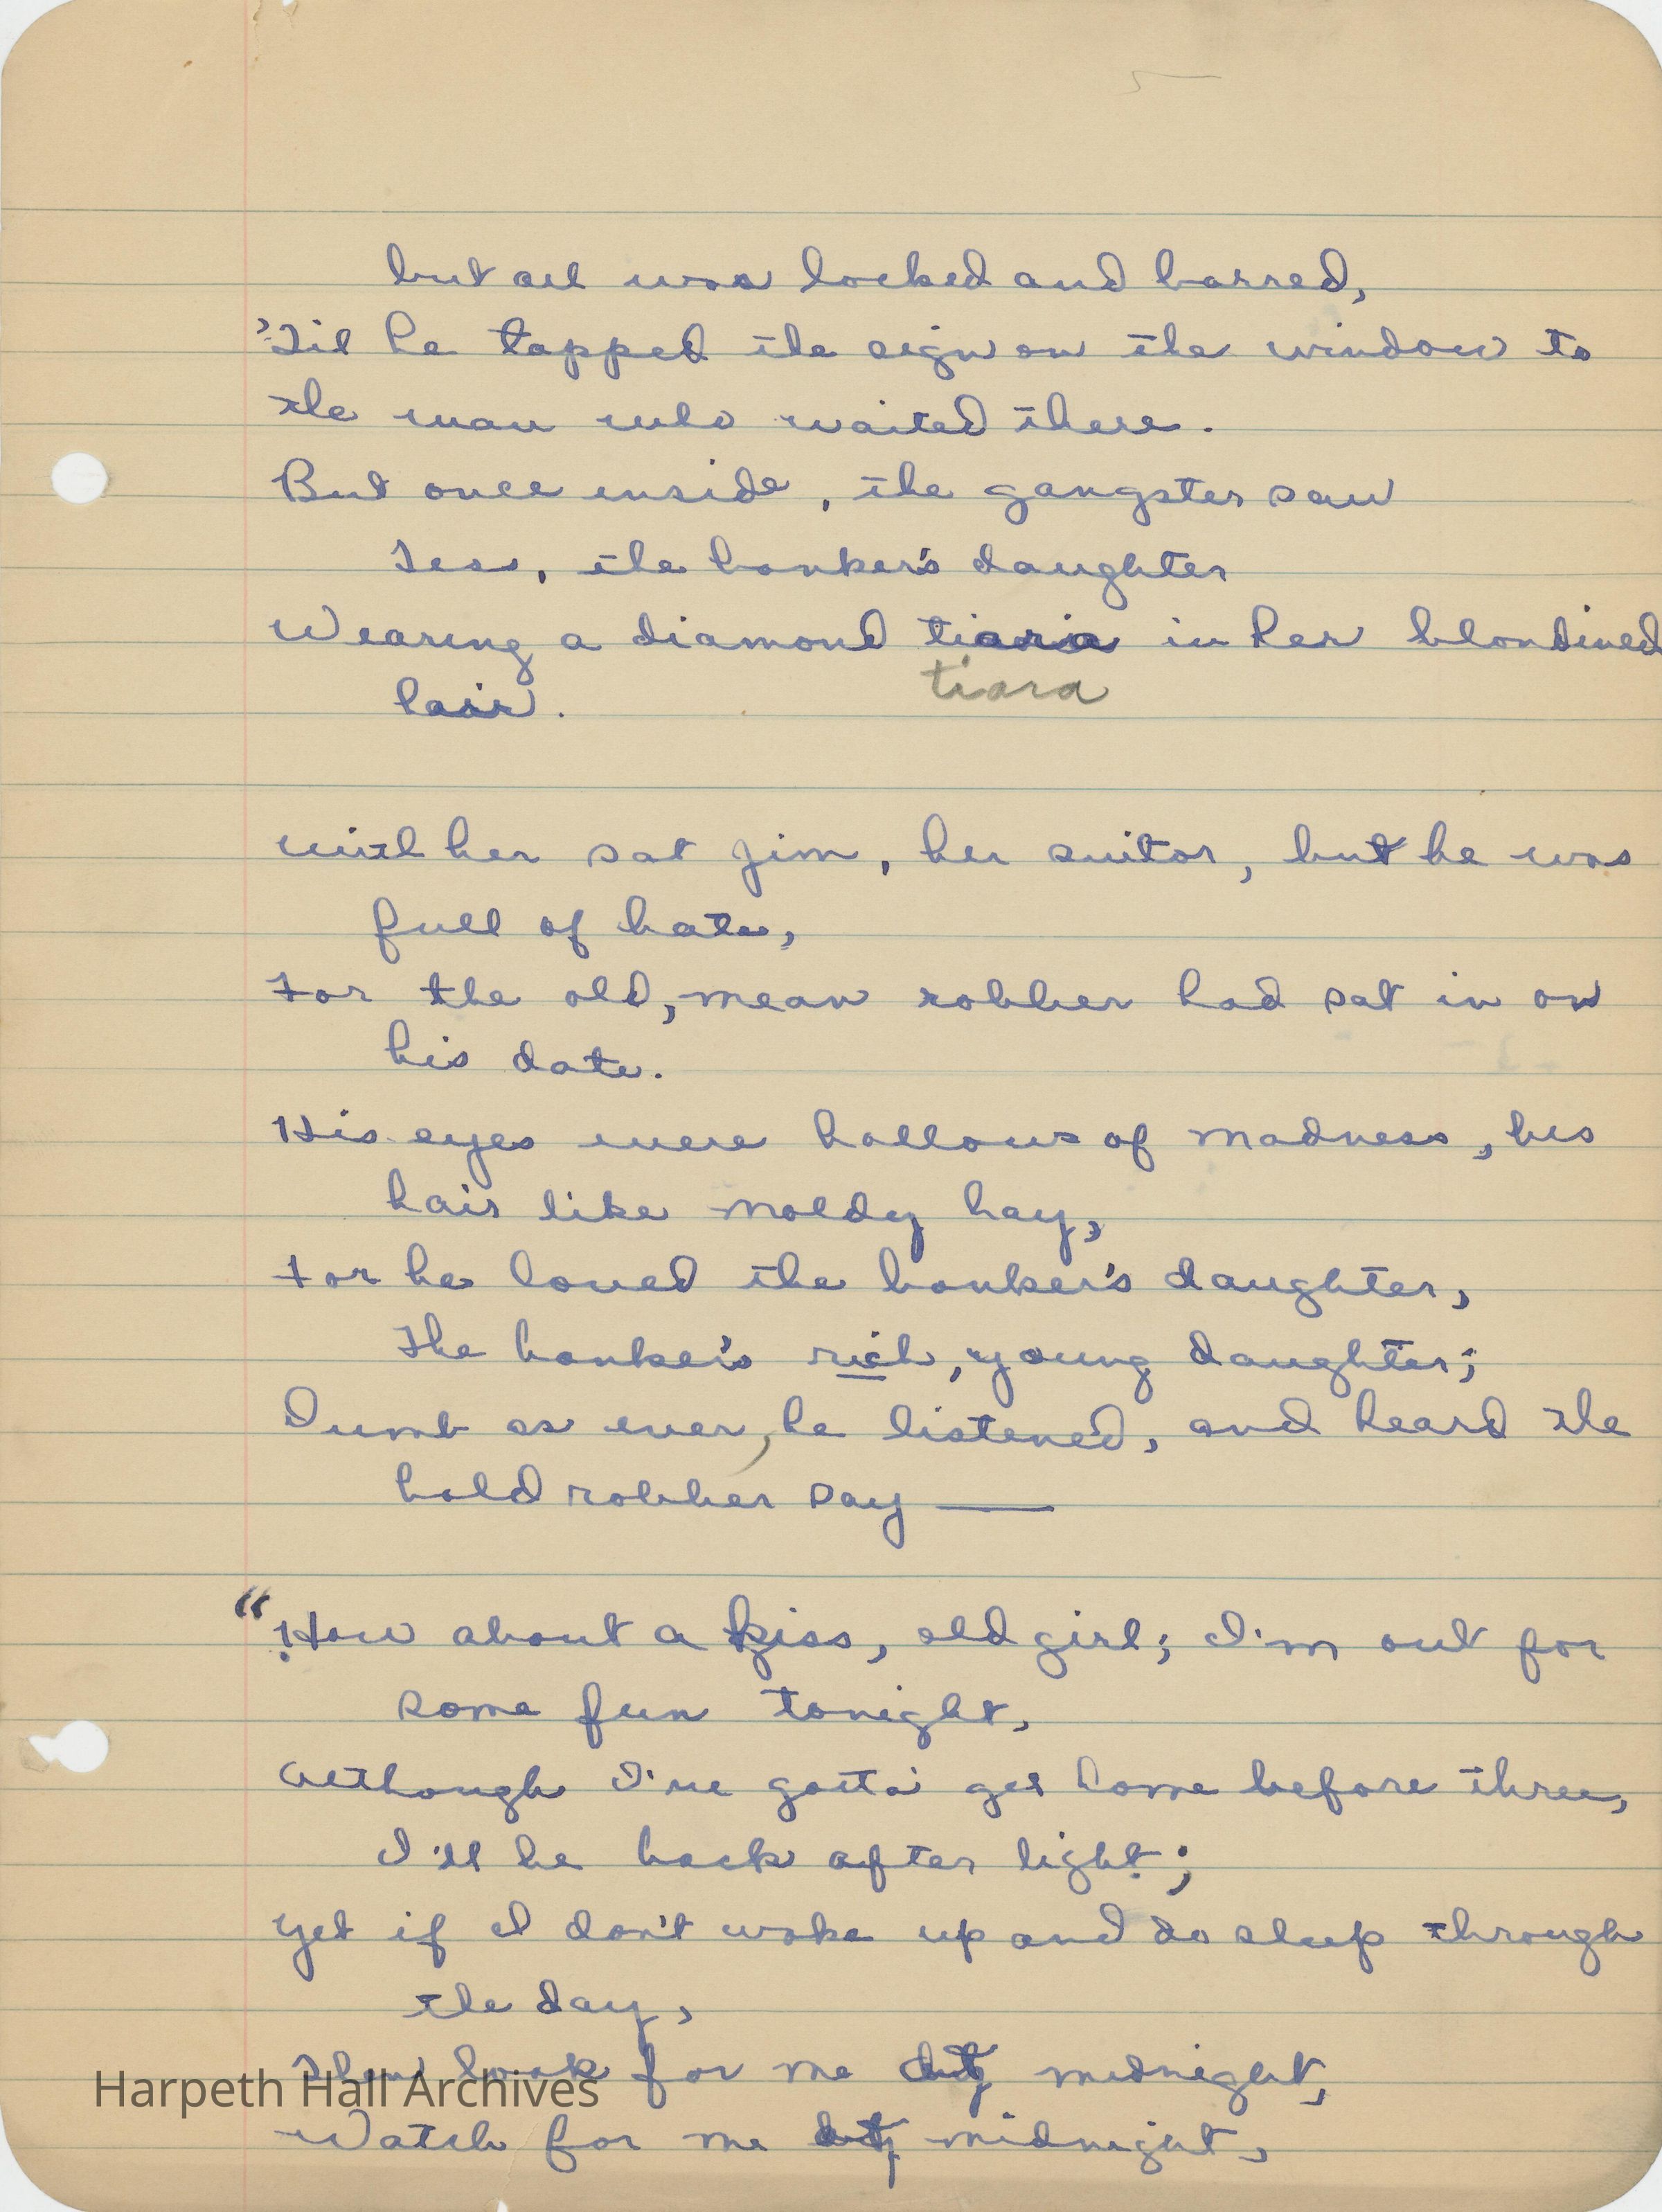 but all was locked and barred,
'Til he tapped the sign on the window to
the man who waited there.
But once inside, the gangster saw
Tess, the banker's daughter
Wearing a diamond tiaria in her blondined
tiara
hair.
With her sat Jim, her suitor, but he was
full of hate,
For the old, mean robber had sat in on
his date.
His eyes were hallows of madness, his
hair like moldy hay,
For he loved the banker's daughter,
The banker's rich, young daughter;
Dumb as ever, he listened, and heard the
bold robber say —
"How about a kiss, old girl; I'm out for
some fun tonight,
Although I've gotta' get home before three,
I'll be back after light;
Yet if I don't wake up and do sleep through
the day,
Then look for me by midnight,
Watch for me by midnight,
Harpeth Hall Archives